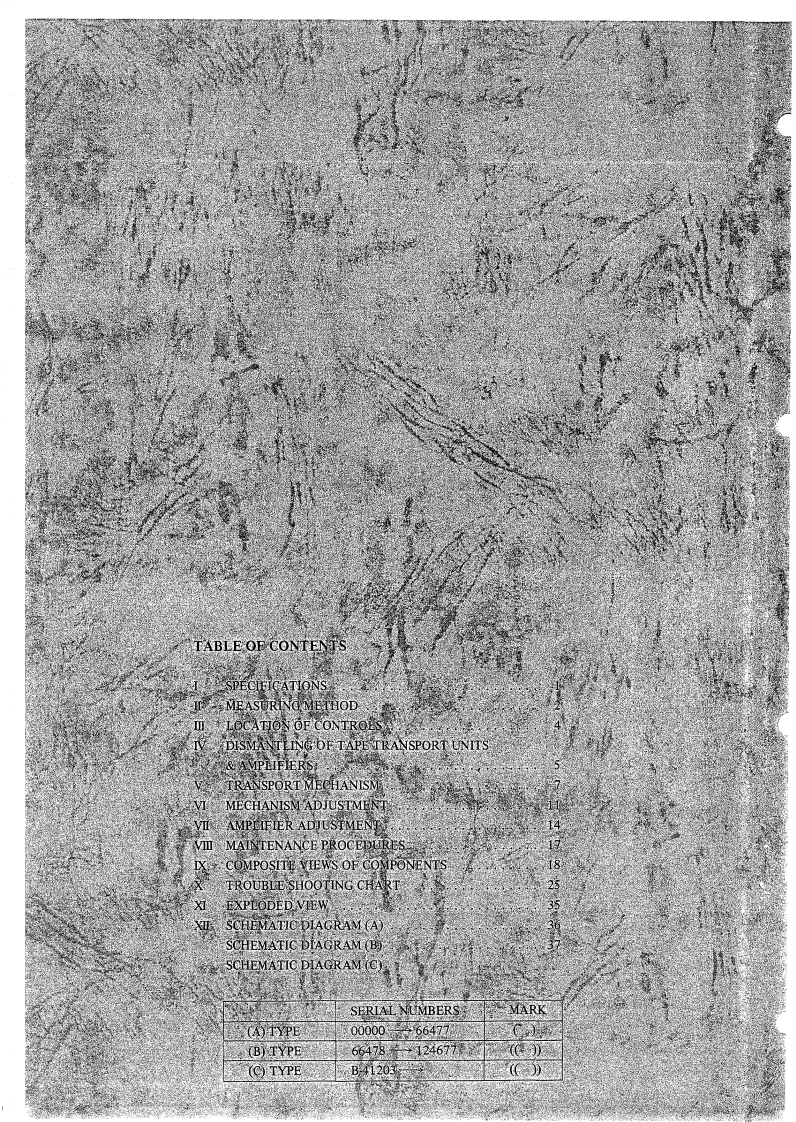 TABLE OF CONTENTS
I SPECIFICATIONS . . . . . . . . . . 1
II MEASURING METHOD . . . . . . . . . . 2
III LOCATION OF CONTROLS . . . . . . . . . . 4
IV DISMANTLING OF TAPE TRANSPORT UNITS
& AMPLIFIERS . . . . . . . . . . 5
V TRANSPORT MECHANISM . . . . . . . . . . 7
VI MECHANISM ADJUSTMENT . . . . . . . . . . 11
VII AMPLIFIER ADJUSTMENT . . . . . . . . . . 14
VIII MAINTENANCE PROCEDURES . . . . . . . . . . 17
IX COMPOSITE VIEWS OF COMPONENTS . . . . . . . . . . 18
X TROUBLE SHOOTING CHART . . . . . . . . . . 25
XI EXPLODED VIEW . . . . . . . . . . 35
XII SCHEMATIC DIAGRAM (A) . . . . . . . . . . 36
SCHEMATIC DIAGRAM (B) . . . . . . . . . . 37
SCHEMATIC DIAGRAM (C)
SERIAL NUMBERS MARK
(A) TYPE 00000 → 66477 ( )
(B) TYPE 66478 → 124677 (( ))
(C) TYPE B-41203 → (( ))